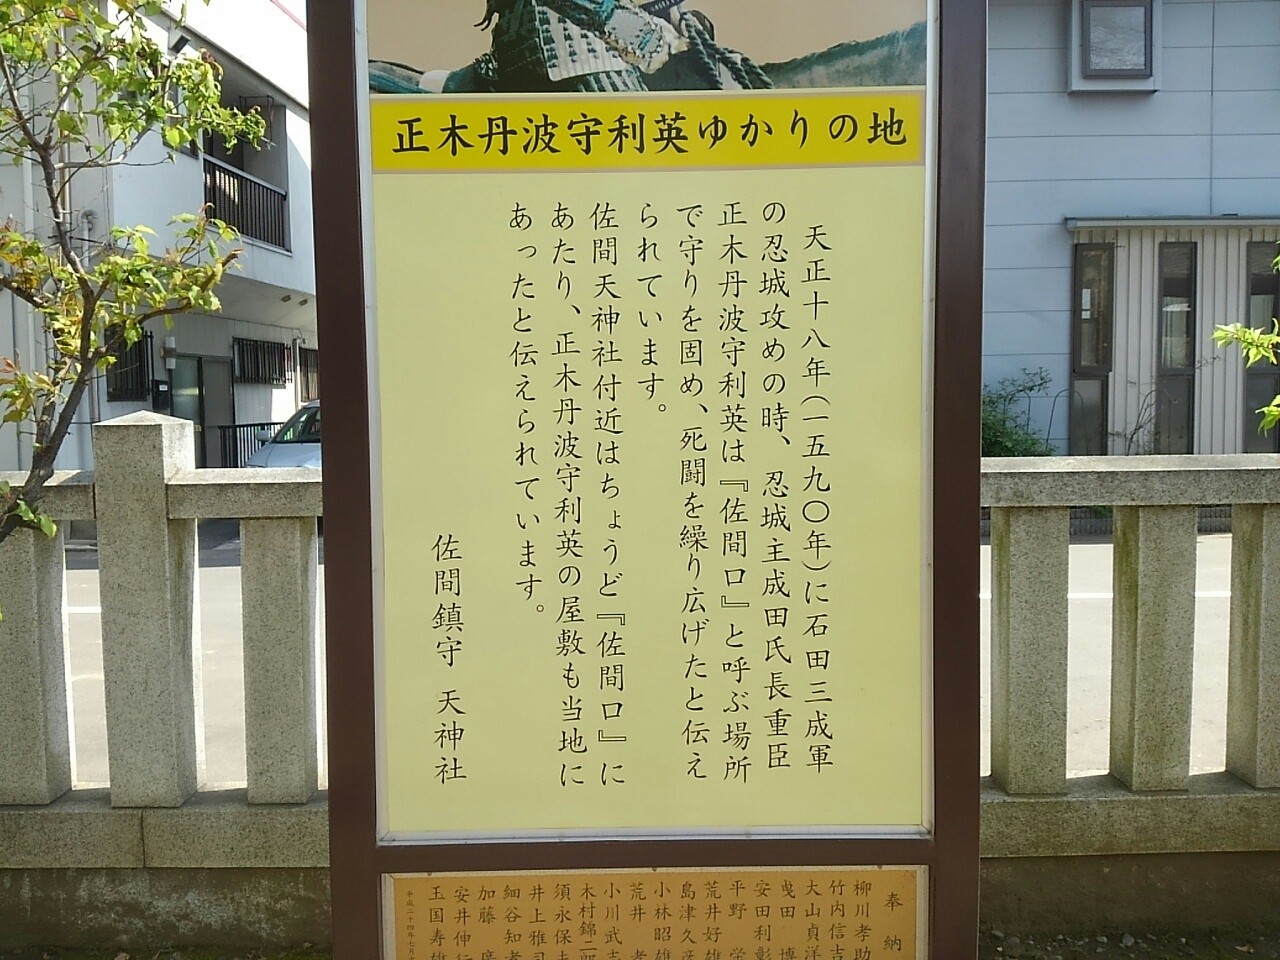 正木丹波守利英ゆかりの地
天正十八年(一五九〇年)に石田三成軍
の忍城攻めの時、忍城主成田氏長重臣
正木丹波守利英は『佐間口』と呼ぶ場所
で守りを固め、死闘を繰り広げたと伝え
られています。
佐間天神社付近はちょうど『佐間口』に
あたり、正木丹波守利英の屋敷も当地に
あったと伝えられています。
佐間鎮守 天神社
奉納
柳川孝助
竹内信吉
大山貞洋
曳田博
安田利彰
平野栄
荒井好雄
島津久彦
小林昭雄
荒井孝
小川武志
木村錦二郎
須永保夫
井上雅司
細谷知孝
加藤
安井伸行
玉国寿雄
平成二十四年七月